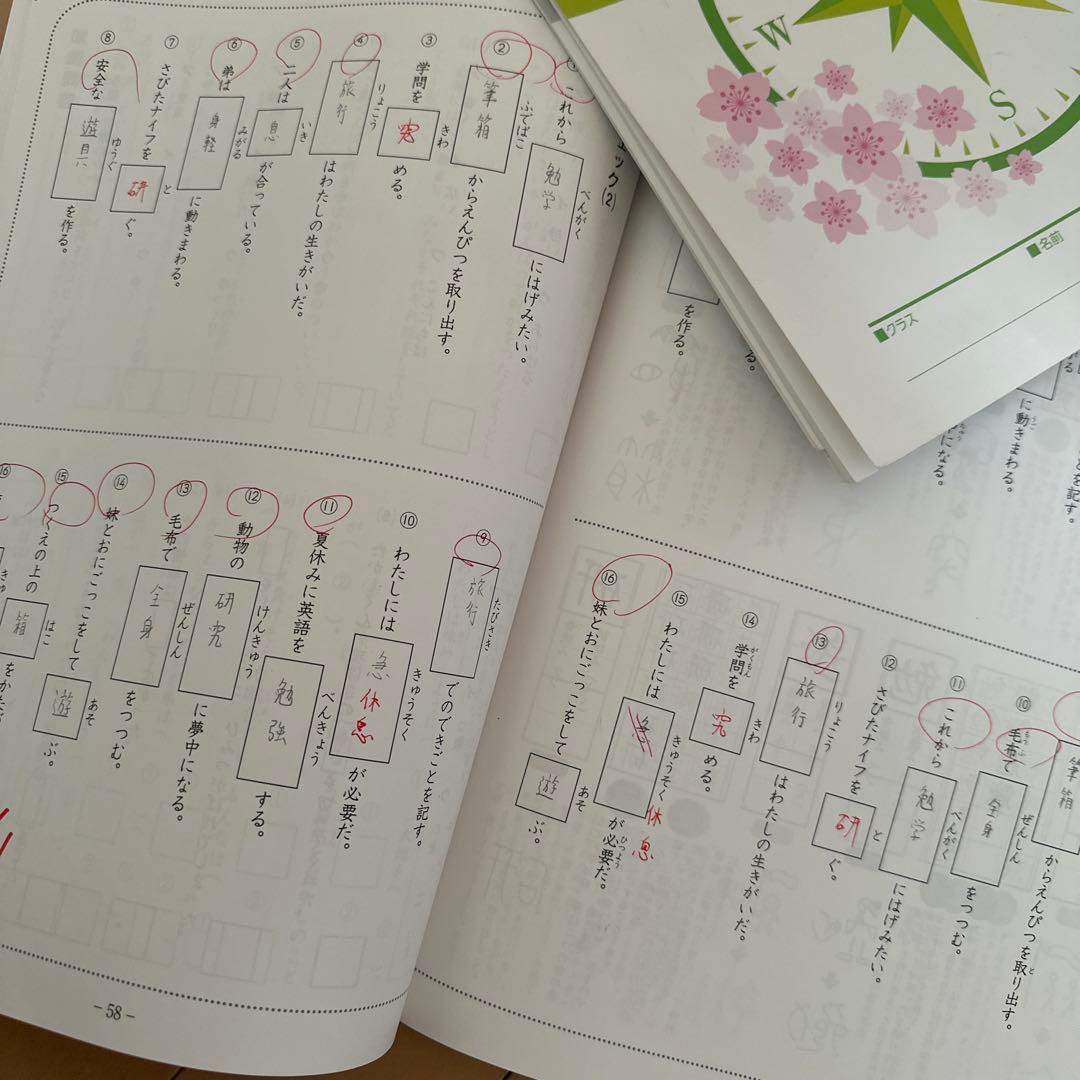 ェック(2)
① これから勉学にはげみたい。
べんがく
② 筆箱からえんぴつを取り出す。
ふでばこ
③ 学問を究める。
きわ
④ 旅行はわたしの生きがいだ。
りょこう
⑤ 二人は息が合っている。
いき
⑥ 弟は身軽に動きまわる。
みがる
⑦ さびたナイフを研ぐ。
と
⑧ 安全な遊具を作る。
ゆうぐ
⑨ 旅行でのできごとを記す。
たびさき
⑩ わたしには急休息が必要だ。
きゅうそく
⑪ 夏休みに英語を勉強する。
べんきょう
⑫ 動物の研究に夢中になる。
けんきゅう
⑬ 毛布で全身をつつむ。
ぜんしん
⑭ 妹とおにごっこをして遊ぶ。
あそ
⑮ つくえの上の箱をかた
はこ
⑯
きゅ
-58-
W
S
■名前
■クラス
を作る。
る。
に動きまわる。
うご
になる。
を記す。
筆箱からえんぴつを取り出す。
と
⑩ 毛布で全身をつつむ。
もうふ
ぜんしん
⑪ これから勉学にはげみたい。
べんがく
⑫ さびたナイフを研ぐ。
と
⑬ 旅行はわたしの生きがいだ。
りょこう
⑭ 学問を究める。
がくもん
きわ
⑮ わたしには急が必要だ。
きゅうそく
ひつよう
休息
⑯ 妹とおにごっこをして遊ぶ。
あそ